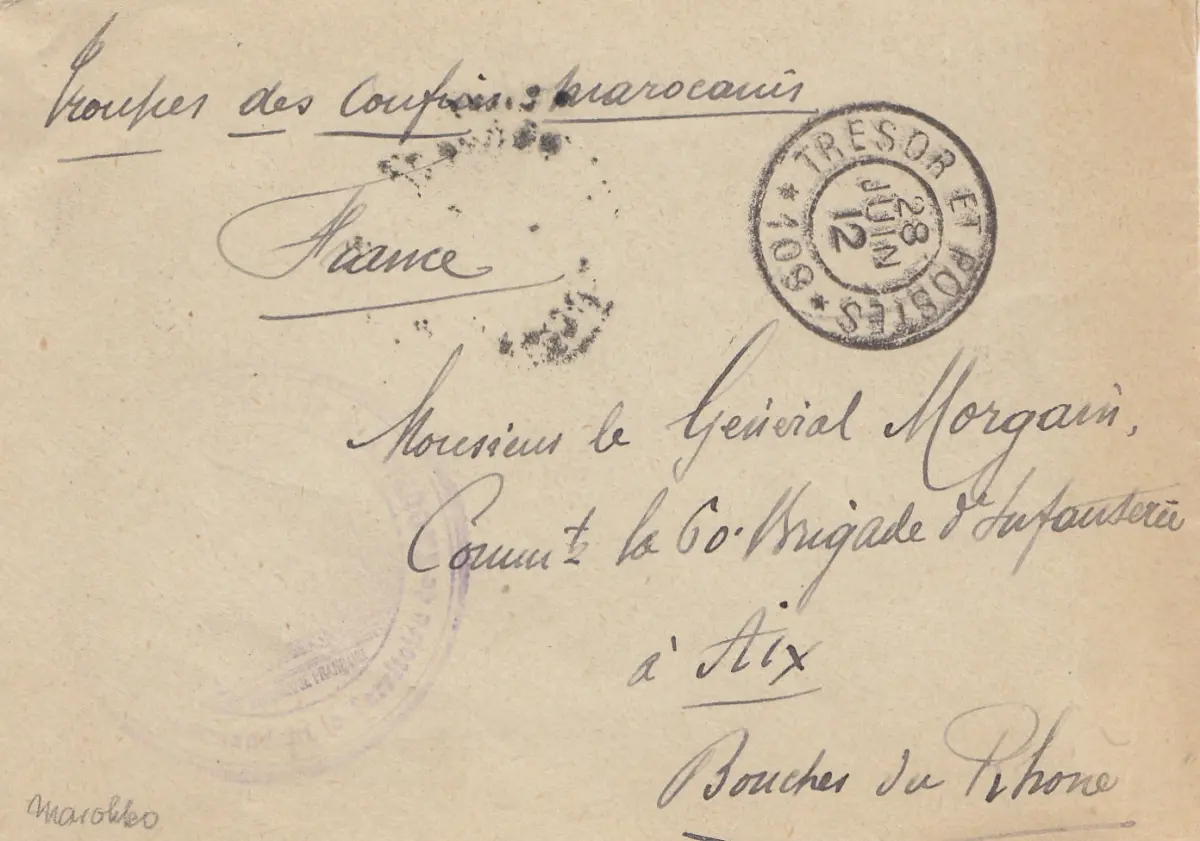 Troupes des Confins marocains
TRESOR ET POSTES
* 108 *
28
JUIN
12
France
Monsieur le Général Morgain,
Commt la 60e Brigade d'Infanterie
à Aix
Bouches du Rhône
FRANÇAISE
Marokko